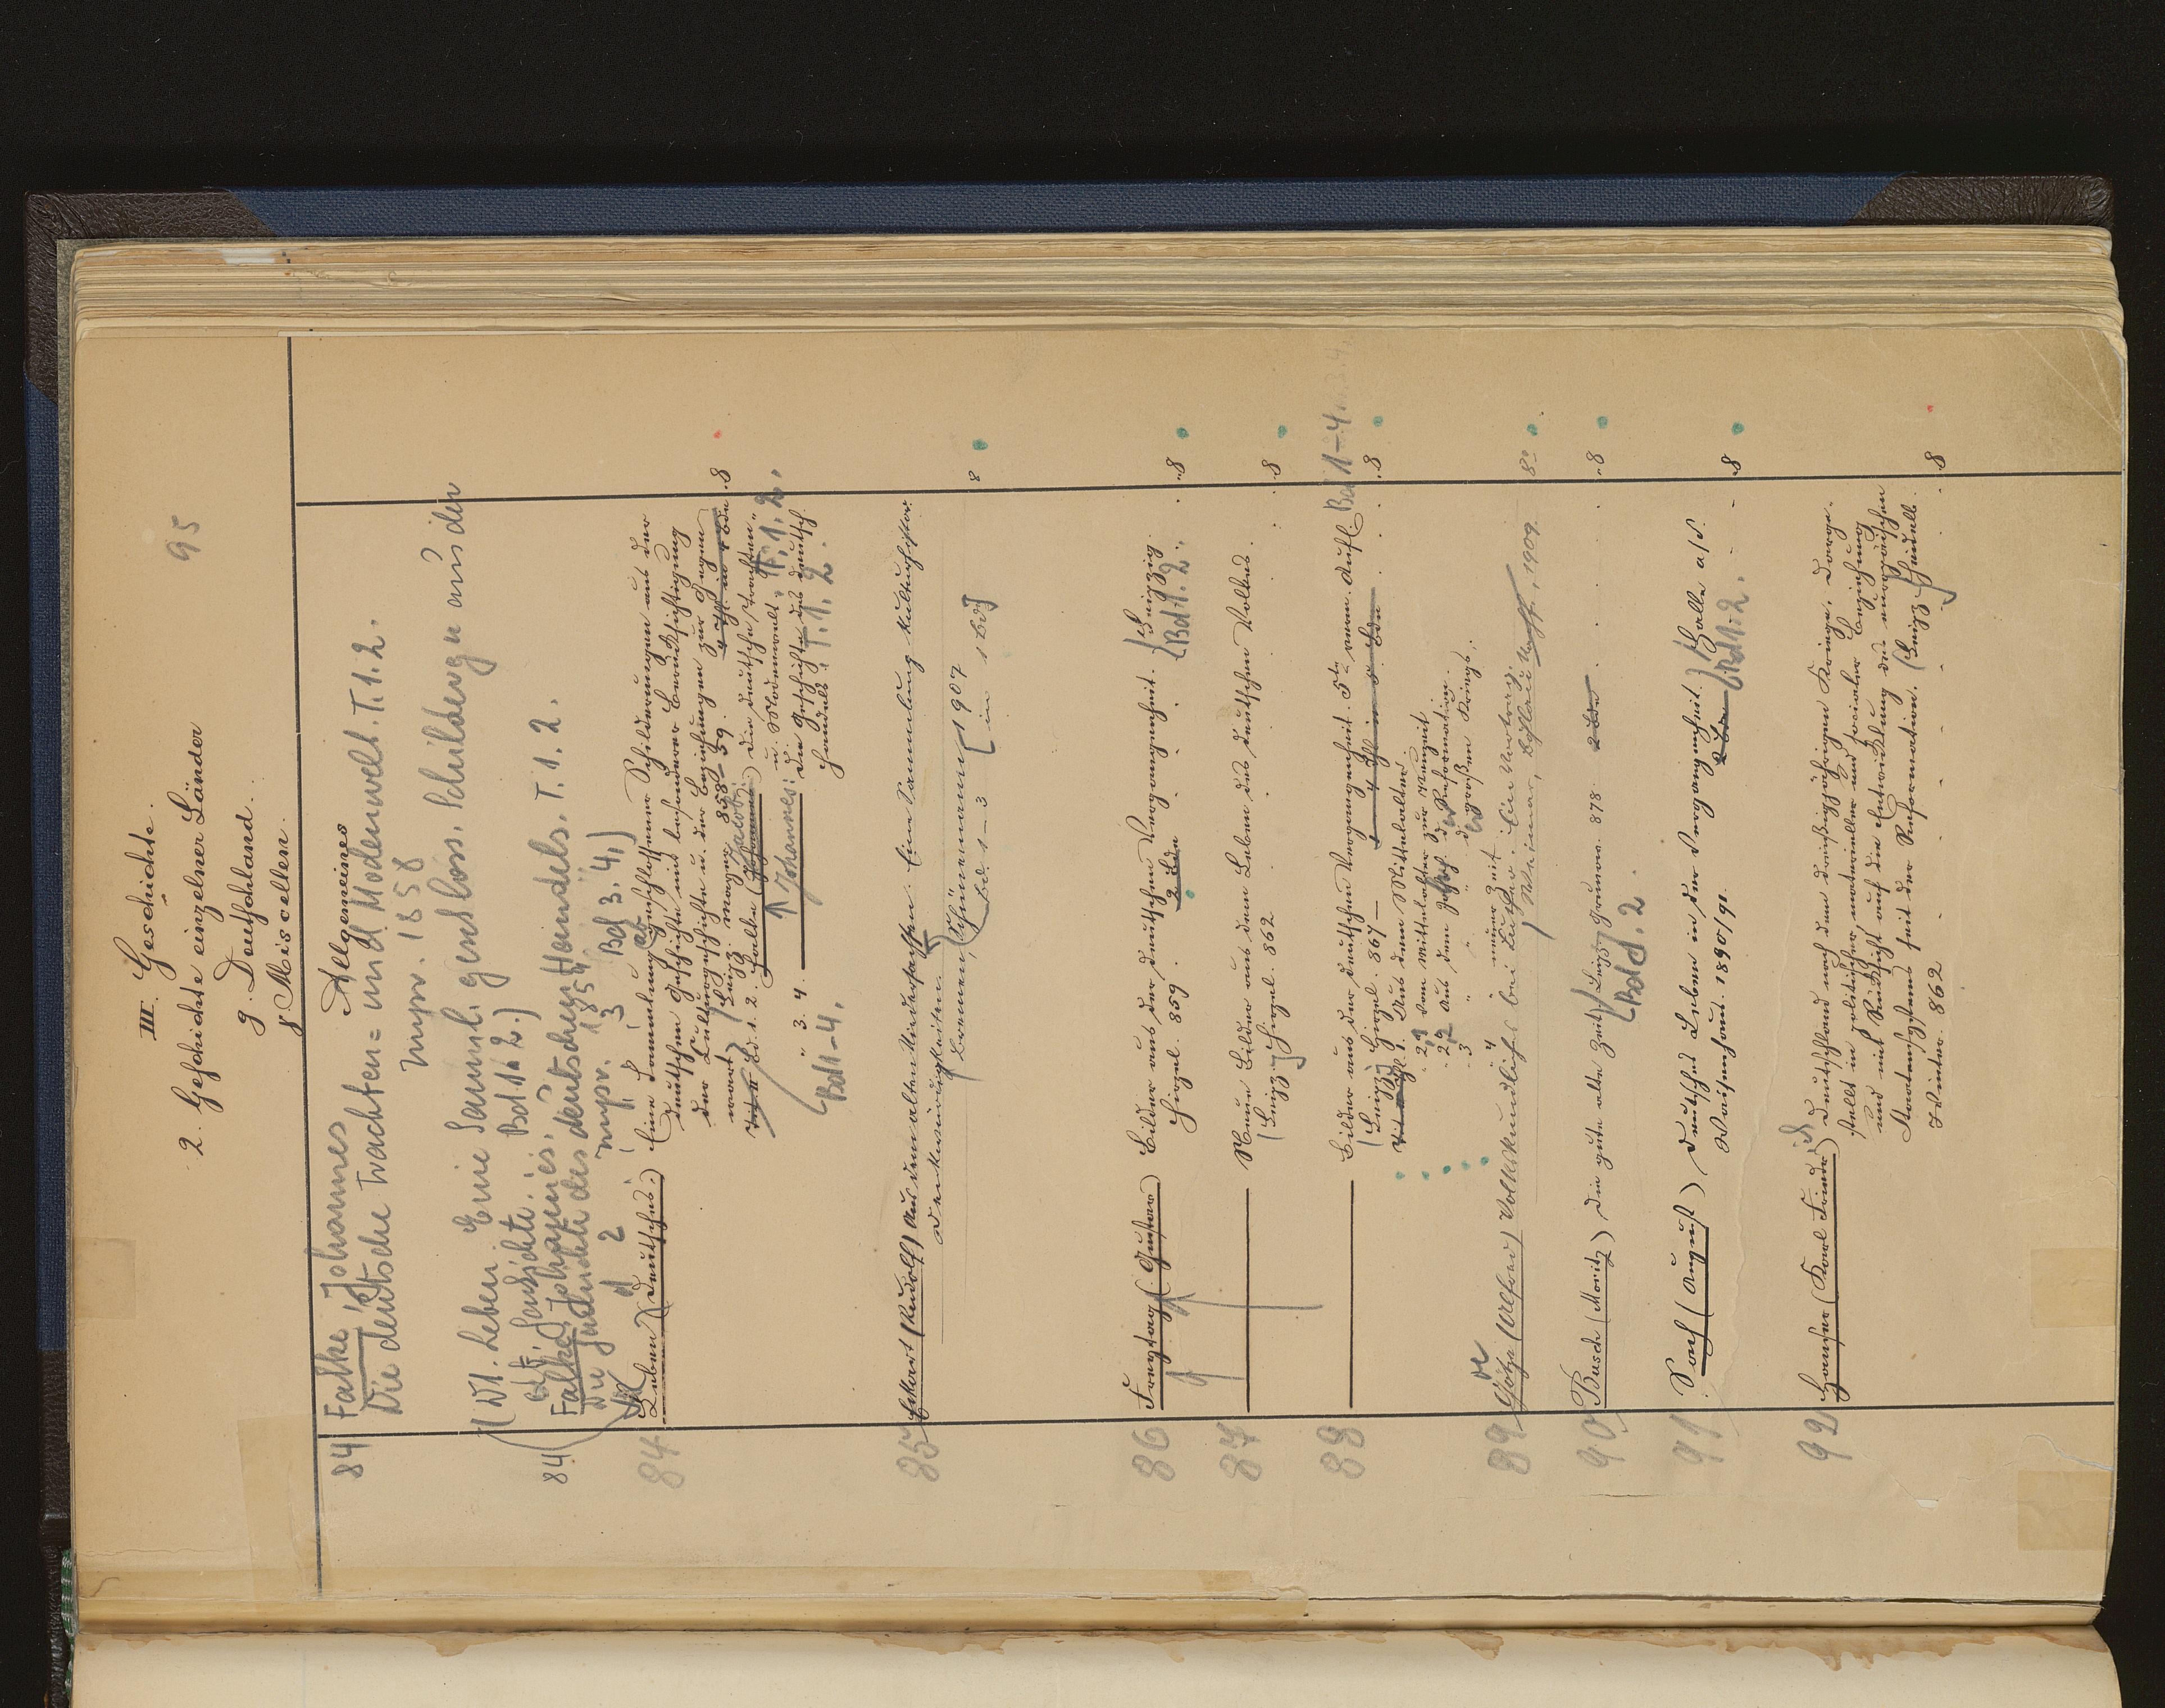 III. Geschichte.
95
2. Geschichte einzelner Länder
g. Deutschland.
γ Miscellen.
Allgemeines
84 Falke, Johannes
Die deutsche Trachten= und Modenwelt. T. 1. 2.
1858
(Dt. Leben. Eine Samml. geschloss. Schilderugn aus der
dt. Geschichte. Bd 1 u 2.)
84 Falke, Johannes.
Die Geschichte des deutschen Handels. T. 1. 2.
Bd 3. 4.)
84 Leben (Deutsches.) Eine Sammlung abgeschlossener Schilderungen aus der
deutschen Geschichte mit besonderer Berücksichtigung
der Culturgeschichte u. der Beziehungen zur Gegen
wart. (Leipz. Mayer 858–59. 8
Bd. 1. 2. Falke (Jacob) die deutsche Trachten-
u. Modenwelt. T. 1. 2.
" 3. 4. Johannes: die Geschichte des deutsch.
Handels. T. 1. 2.
Bd 1–4.
85 Eckart (Rudolf) Aus dem alten Niedersachsen. Eine Sammlung kulturhistor.
Denkwürdigkeiten.
Bremen, Schünemann 1907 8
Bd. 1–3 [in 1 Bd]
86 Freytag (Gustav) Bilder aus der deutschen Vergangenheit. (Leipzig.
Hirzel. 859. 2 Bde (Bd 1. 2. 8
87 Neue Bilder aus dem Leben des deutschen Volkes.
(Leipz.) Hirzel. 862 8
88 Bilder aus der deutschen Vergangenheit. 5te verm. Aufl. Bd 1–4.
(Leipz.) Hirzel. 867– 4 Thl in 5 Bdn 8
1. Aus dem Mittelalter
" 2,1 Vom Mittelalter zur Neuzeit
" 2,2 Aus dem Jahrh. d. Reformation.
" 3 " " d. großen Kriegs.
" 4 " neuer Zeit.
89 Götze (Alfred) Volkskundliches bei Luther. Ein Vortrag.
Weimar, Böhlau Nachf., 1909. 8°
90 Busch (Moritz) Die gute alte Zeit. (Leipz.) Grunow. 878 2 Bde 8
(Bd 1. 2.
91 Sach (August) Deutsches Leben in der Vergangenheit. (Halle a/S.
Waisenhaus. 1890/91. 2 Bde (Bd 1. 2. 8
92 Hanser (Karl Friedrich) Deutschland nach dem dreißigjährigen Kriege. Darge-
stellt in politischer, materieller und socialer Beziehung
und mit Rücksicht auf die Entwicklung des europäischen
Staatensystems seit der Reformation. (Leipz. u. Heidelb.
Winter. 862 8